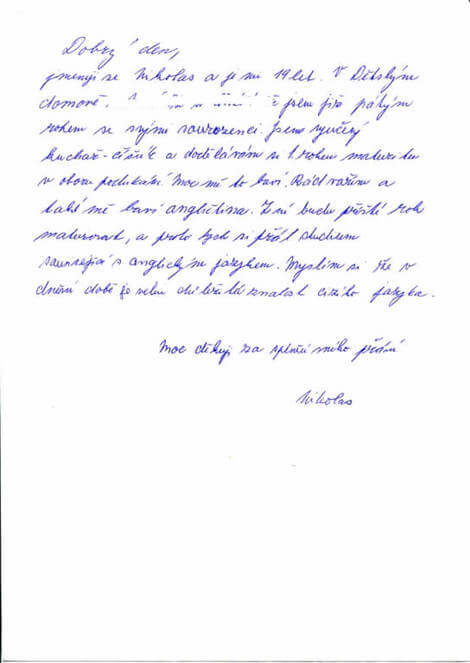 Dobrý den,
jmenuji se Nikolas a je mi 19 let. V Dětským
domově. jsem již pátým
rokem se svými sourozenci. Jsem vyučený
kuchař-číšník a dodělávám si 1. rokem maturitu
v oboru podnikání. Moc mě to baví. Rád vařím a
také mě baví angličtina. Z ní budu příští rok
maturovat, a proto bych si přál
související s anglickým jazykem. Myslím si že v
dnešní době je velmi důležitá znalost cizího jazyka.
Moc děkuji za splnění mého přání
Nikolas